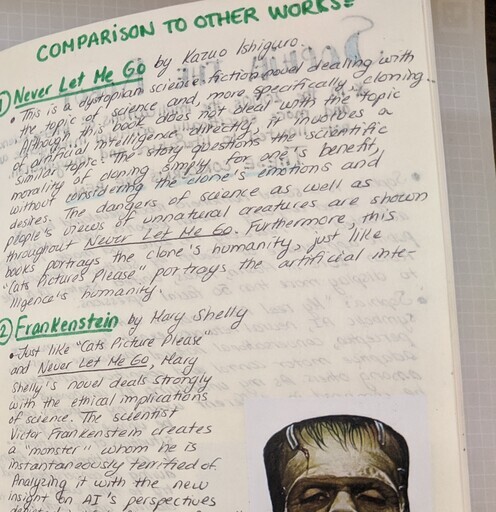 COMPARISON TO OTHER WORKS:
① Never Let Me Go by Kazuo Ishiguro
• This is a dystopian science fiction novel dealing with
the topic of science and more specifically, cloning.
Although this book does not deal with the topic
of artificial intelligence directly, it involves a
similar topic. The story questions the scientific
morality of cloning simply for one's benefit,
without considering the clone's emotions and
desires. The dangers of science as well as
people's views of unnatural creatures are shown
throughout Never Let Me Go. Furthermore, this
books portrays the clone's humanity, just like
"Cats Pictures Please" portrays the artificial inte-
lligence's humanity.
② Frankenstein by Mary Shelly
• Just like "Cats Picture Please"
and Never Let Me Go, Mary
Shelly's novel deals strongly
with the ethical implications
of science. The scientist
Victor Frankenstein creates
a "monster" whom he is
instantaneously terrified of.
Analyzing it with the new
insight on AI's perspectives